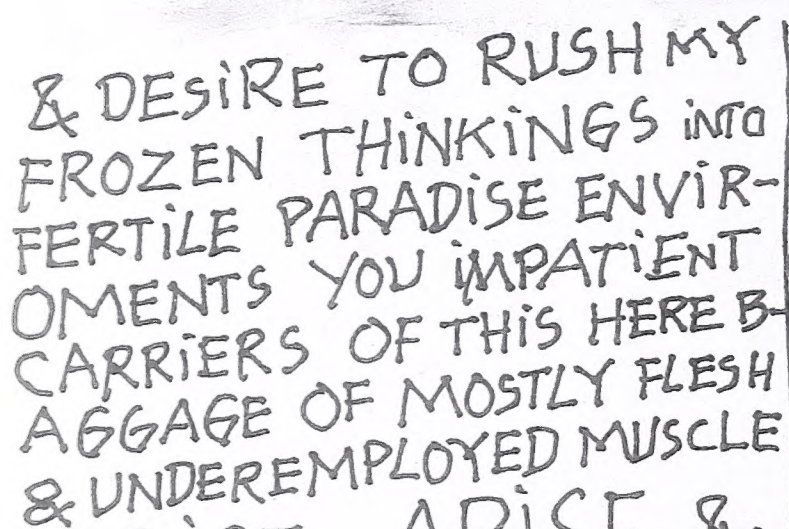 & DESiRE TO RUSH MY
FROZEN THiNKiNGS iNTO
FERTiLE PARADiSE ENViR-
OMENTS YOU iMPATiENT
CARRiERS OF THiS HERE B-
AGGAGE OF MOSTLY FLESH
& UNDEREMPLOYED MUSCLE